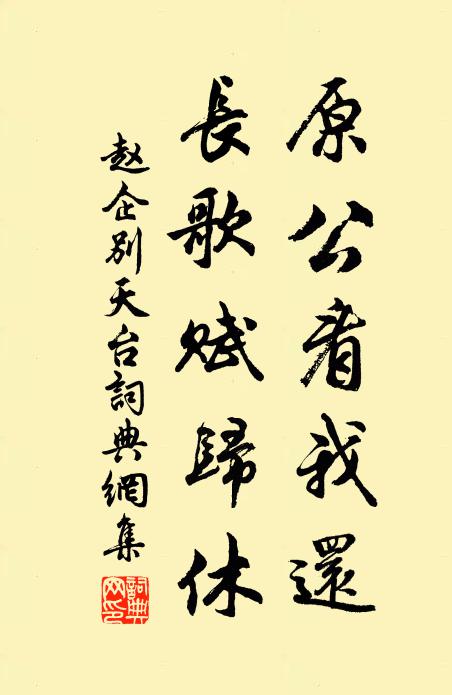 原公看我還
長歌賦歸休
赵企别天台詞典網集
詞典網印